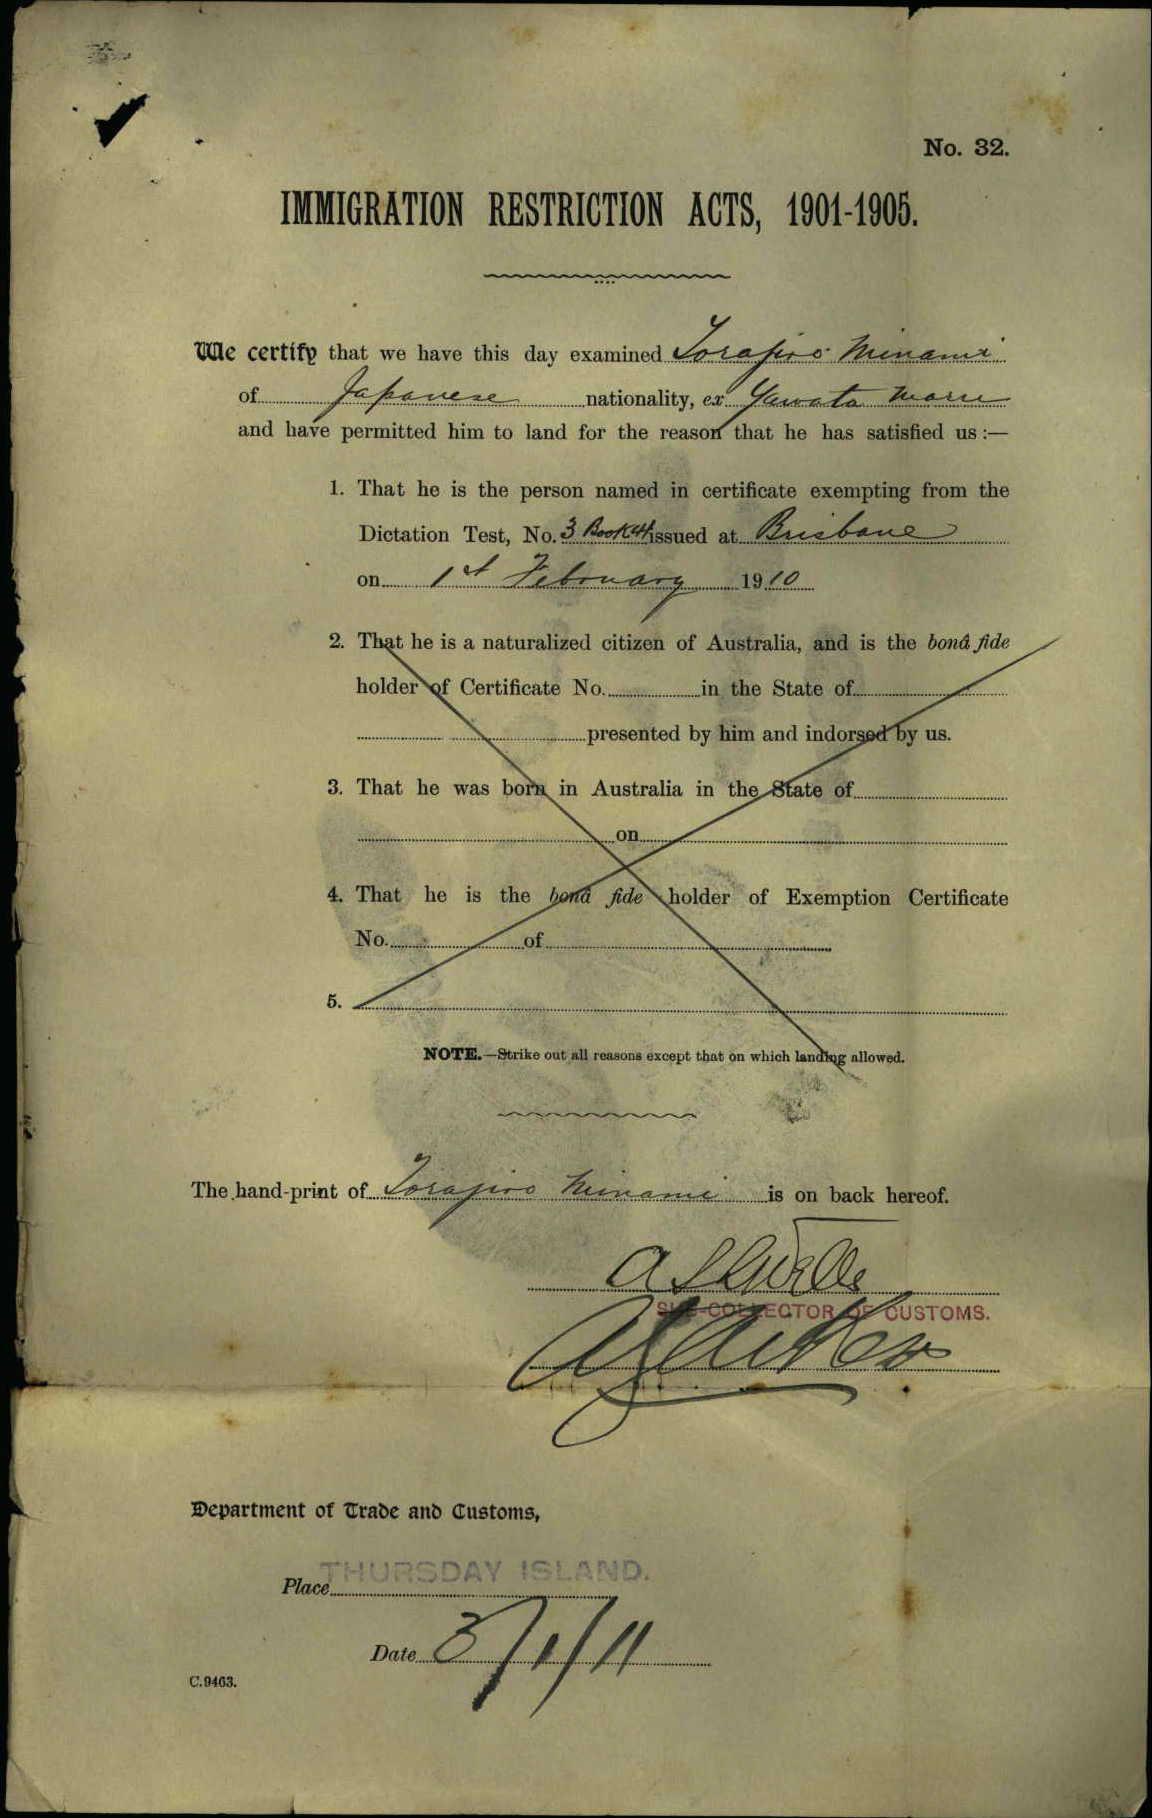 No. 32.
IMMIGRATION RESTRICTION ACTS, 1901-1905.
We certify that we have this day examined Torajiro Minami
of Japanese nationality, ex Yawata Maru
and have permitted him to land for the reason that he has satisfied us :—
1. That he is the person named in certificate exempting from the
Dictation Test, No. 3 Book 44 issued at Brisbane
on 1st February 1910
2. That he is a naturalized citizen of Australia, and is the bonâ fide
holder of Certificate No. in the State of
presented by him and indorsed by us.
3. That he was born in Australia in the State of
on
4. That he is the bonâ fide holder of Exemption Certificate
No. of
5.
NOTE.—Strike out all reasons except that on which landing allowed.
The hand-print of Torajiro Minami is on back hereof.
SUB-COLLECTOR OF CUSTOMS.
Department of Trade and Customs,
Place THURSDAY ISLAND.
Date 3/1/11
C.9463.